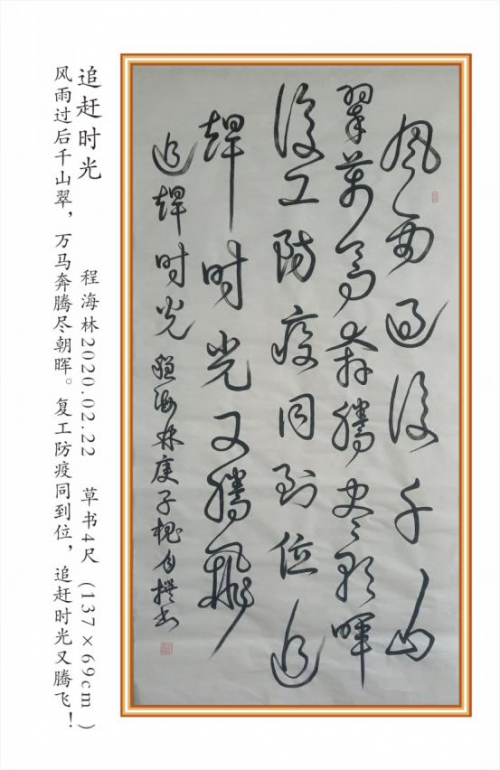 風雨過後千山
翠萬馬奔騰尽朝暉
復工防疫同到位追
趕时光又騰飛
追趕时光 程海林庚子
追赶时光 程海林2020.02.22 草书4尺(137×69cm)
风雨过后千山翠,万马奔腾尽朝晖。复工防疫同到位,追赶时光又腾飞!